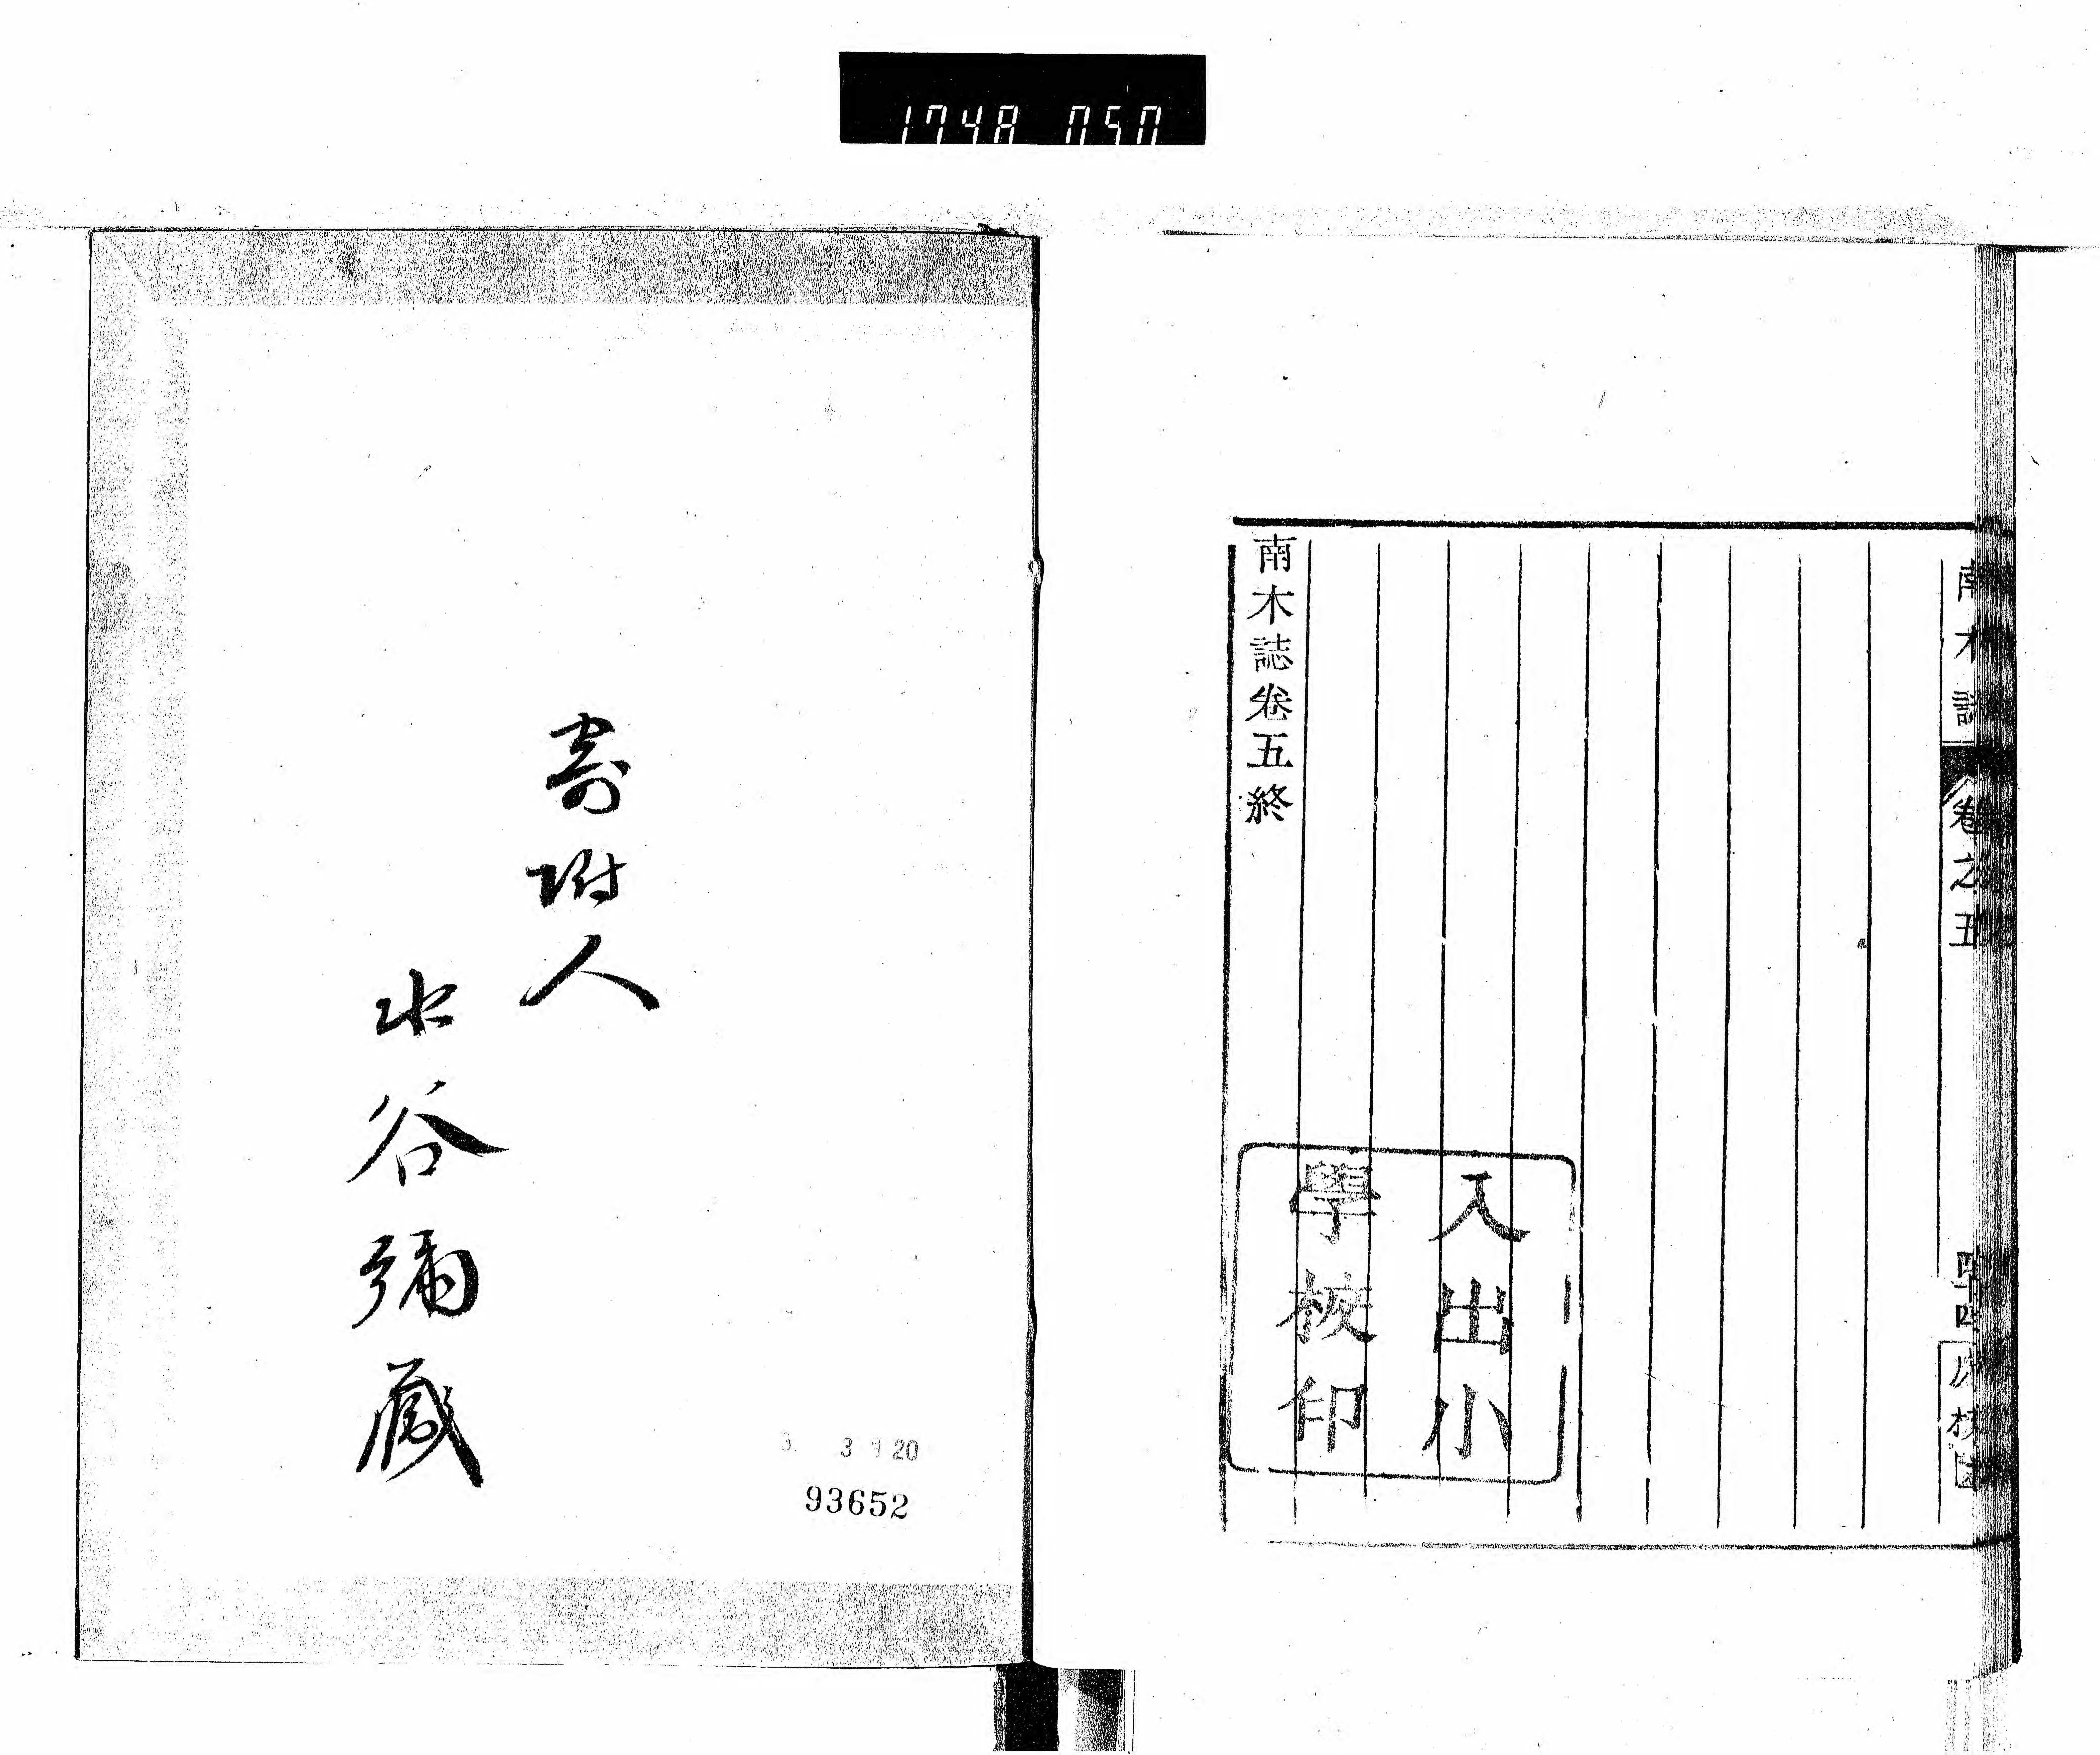 1748 050
南木誌
卷之五
四十四
南木誌卷五終
入出小
學校印
寄附人
水谷彌藏
3 20
93652